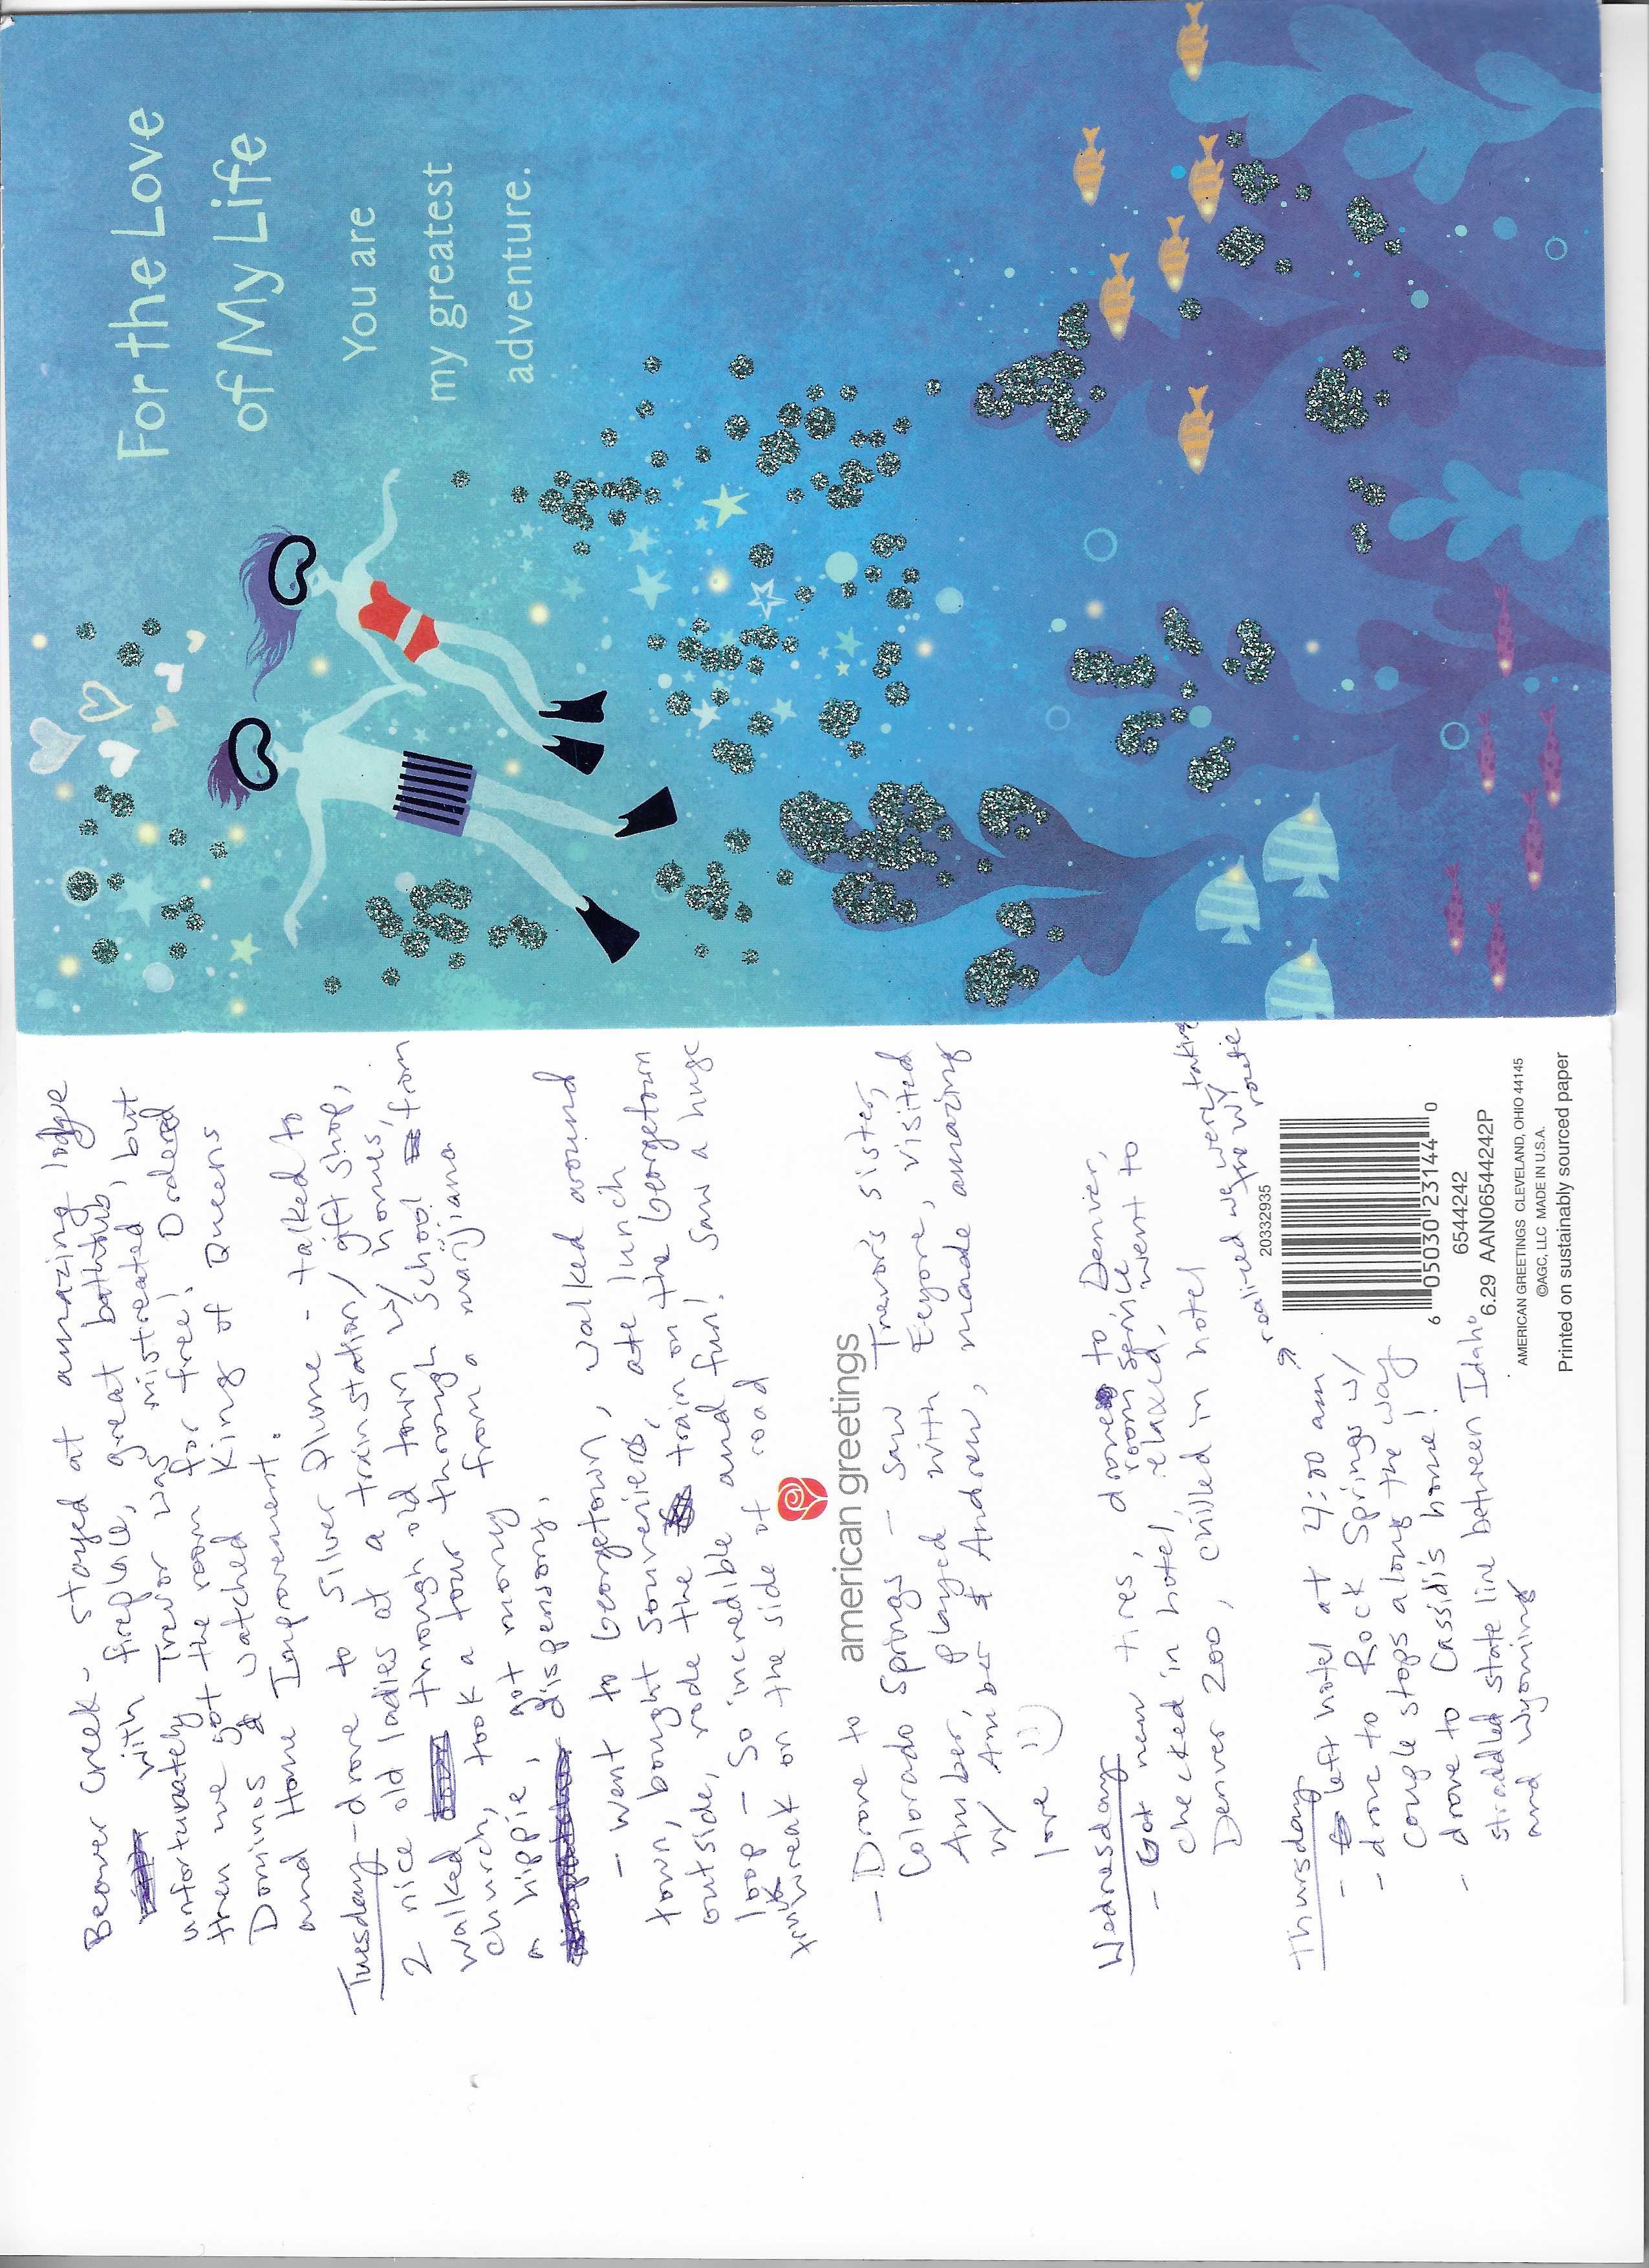 For the Love
of My Life
You are
my greatest
adventure.
Beaver Creek - stayed at amazing lodge
with fireplace, great bathtub, but
unfortunately Trevor was mistreated
then we got the room for free! Ordered
Dominos & watched King of Queens
and Home Improvement.
Tuesday - drove to Silver Plume - talked to
2 nice old ladies at a train station/gift shop,
walked through old town w/ homes,
church, took a tour through old school from
a hippie, got mony from a marijiana
dispensory.
- went to Georgetown, walked around
town, bought souveniers, ate lunch
outside, rode the train on the Georgetown
loop - so incredible and fun! Saw a huge
truck wreak on the side of road
american greetings
- Drove to
Colorado Springs - saw Trevor's sister,
Amber, played with Eeyore, visited
w/ Amber & Andrew, made amazing
love
Wednesday
- Got new tires, drove to Denver,
checked in hotel, room service
relaxed, went to
Denver Zoo, chilled in hotel
Thursday
- left hotel at 4:00 am
realized we were taking
the WY route
- drove to Rock Springs w/
couple stops along the way
- drove to Cassidi's home!
straddled state line between Idaho
and Wyoming
20332935
6 05030 23144 0
6544242
6.29 AAN06544242P
AMERICAN GREETINGS CLEVELAND, OHIO 44145
©AGC, LLC MADE IN U.S.A.
Printed on sustainably sourced paper